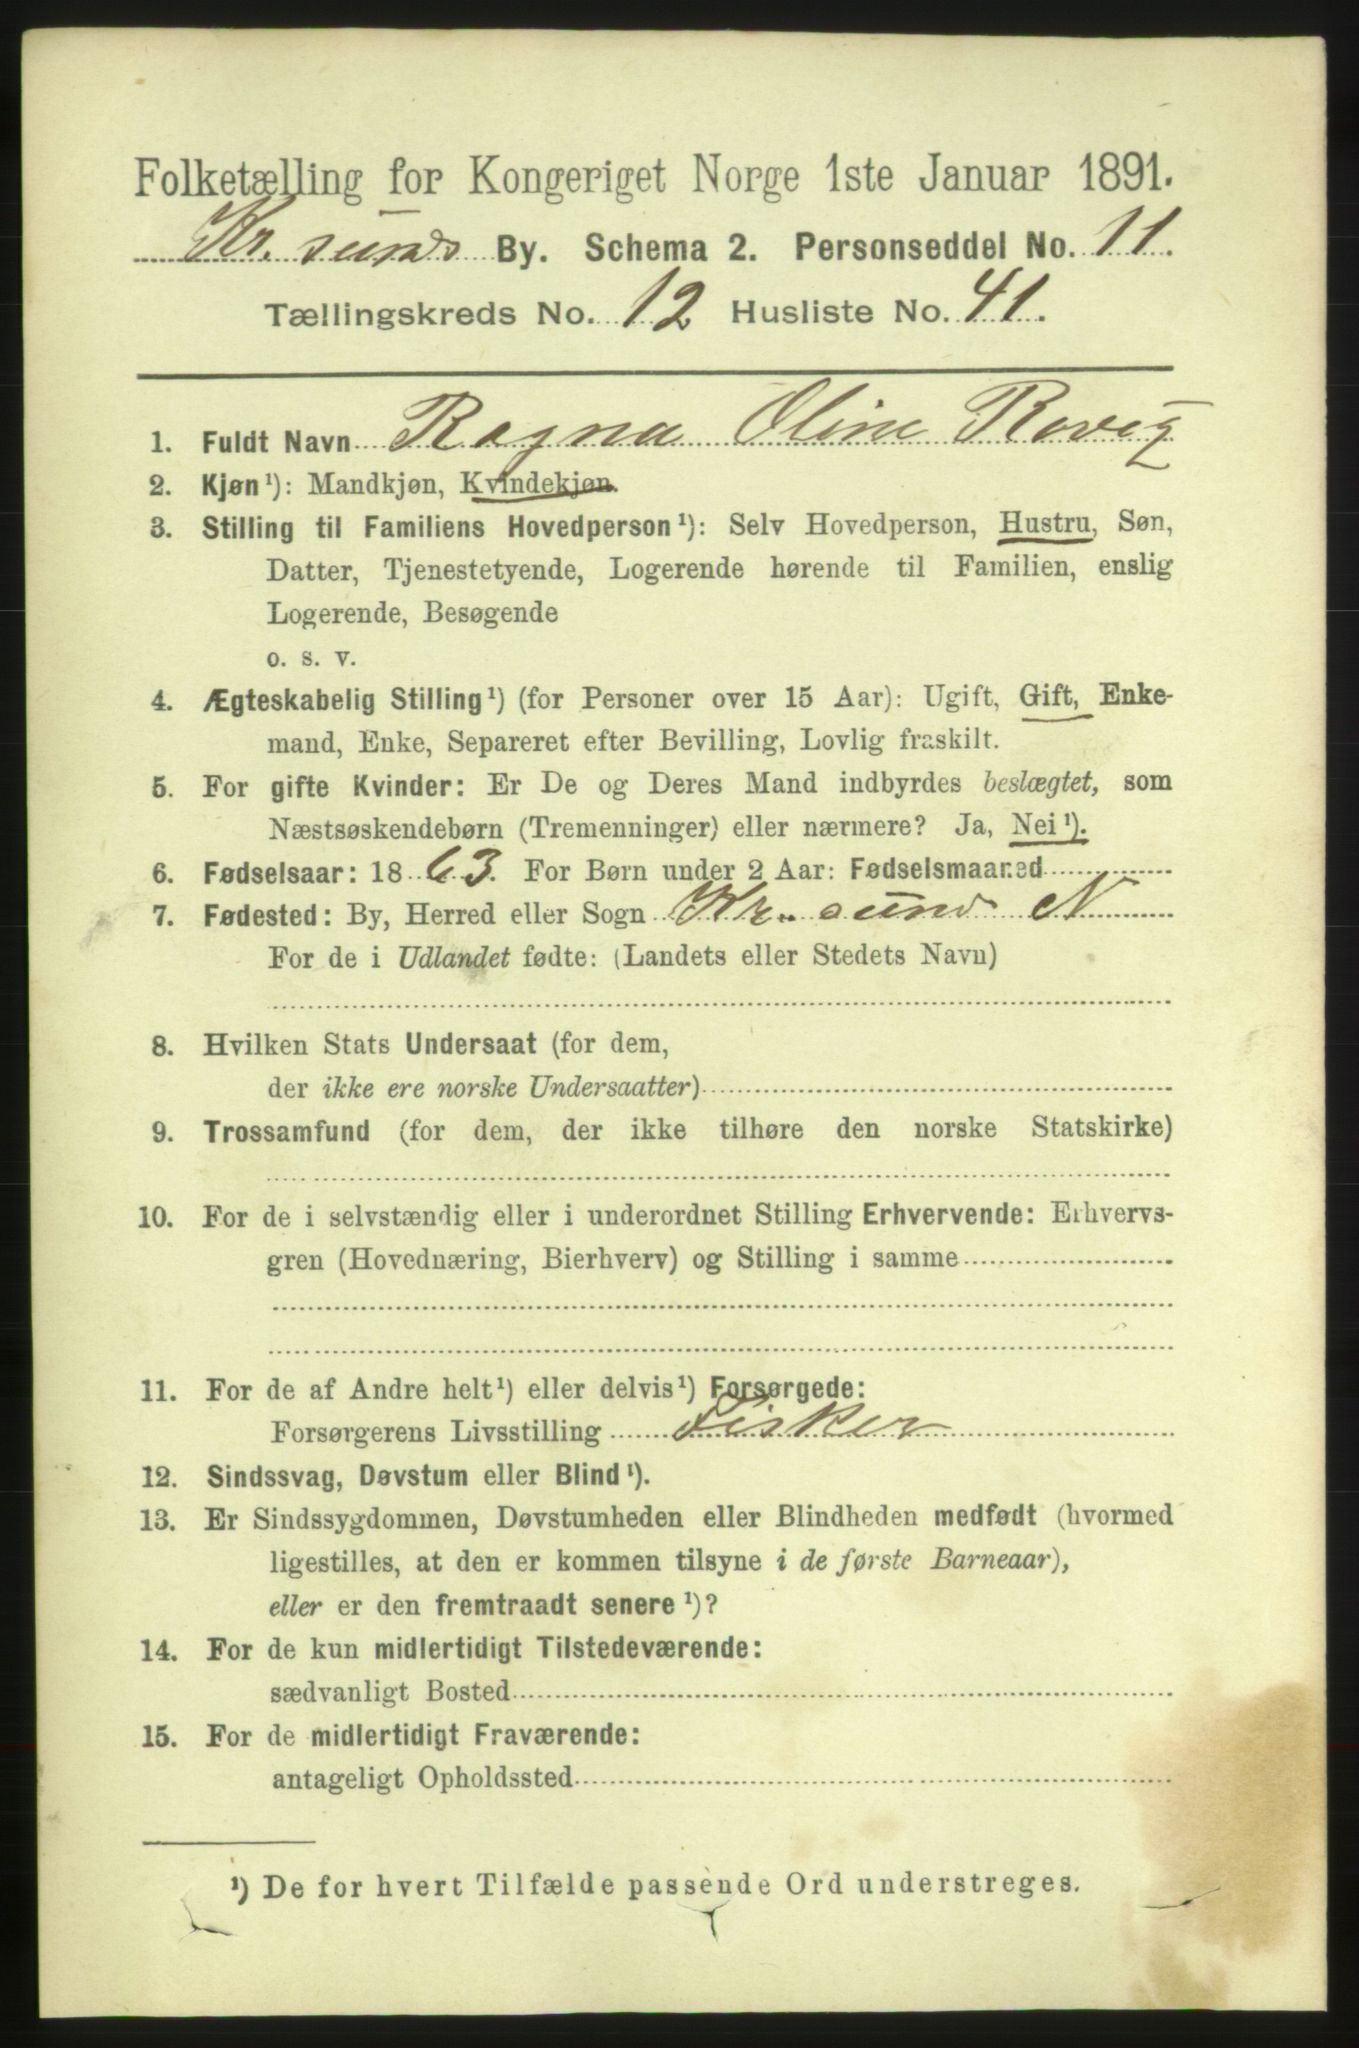 Folketælling for Kongeriget Norge 1ste Januar 1891.
Kr. sunds By. Schema 2. Personseddel No. 11.
Tællingskreds No. 12 Husliste No. 41.
1. Fuldt Navn Ragna Oline Rovig
2. Kjøn¹): Mandkjøn, Kvindekjøn.
3. Stilling til Familiens Hovedperson¹): Selv Hovedperson, Hustru, Søn,
Datter, Tjenestetyende, Logerende hørende til Familien, enslig
Logerende, Besøgende
o. s. v.
4. Ægteskabelig Stilling¹) (for Personer over 15 Aar): Ugift, Gift, Enke-
mand, Enke, Separeret efter Bevilling, Lovlig fraskilt.
5. For gifte Kvinder: Er De og Deres Mand indbyrdes beslægtet, som
Næstsøskendebørn (Tremenninger) eller nærmere? Ja, Nei¹).
6. Fødselsaar: 1863. For Børn under 2 Aar: Fødselsmaaned
7. Fødested: By, Herred eller Sogn Kr. sund N
For de i Udlandet fødte: (Landets eller Stedets Navn)
8. Hvilken Stats Undersaat (for dem,
der ikke ere norske Undersaatter)
9. Trossamfund (for dem, der ikke tilhøre den norske Statskirke)
10. For de i selvstændig eller i underordnet Stilling Erhvervende: Erhvervs-
gren (Hovednæring, Bierhverv) og Stilling i samme
11. For de af Andre helt¹) eller delvis¹) Forsørgede:
Forsørgerens Livsstilling Fisker
12. Sindssvag, Døvstum eller Blind¹).
13. Er Sindssygdommen, Døvstumheden eller Blindheden medfødt (hvormed
ligestilles, at den er kommen tilsyne i de første Barneaar),
eller er den fremtraadt senere¹)?
14. For de kun midlertidigt Tilstedeværende:
sædvanligt Bosted
15. For de midlertidigt Fraværende:
antageligt Opholdssted
¹) De for hvert Tilfælde passende Ord understreges.